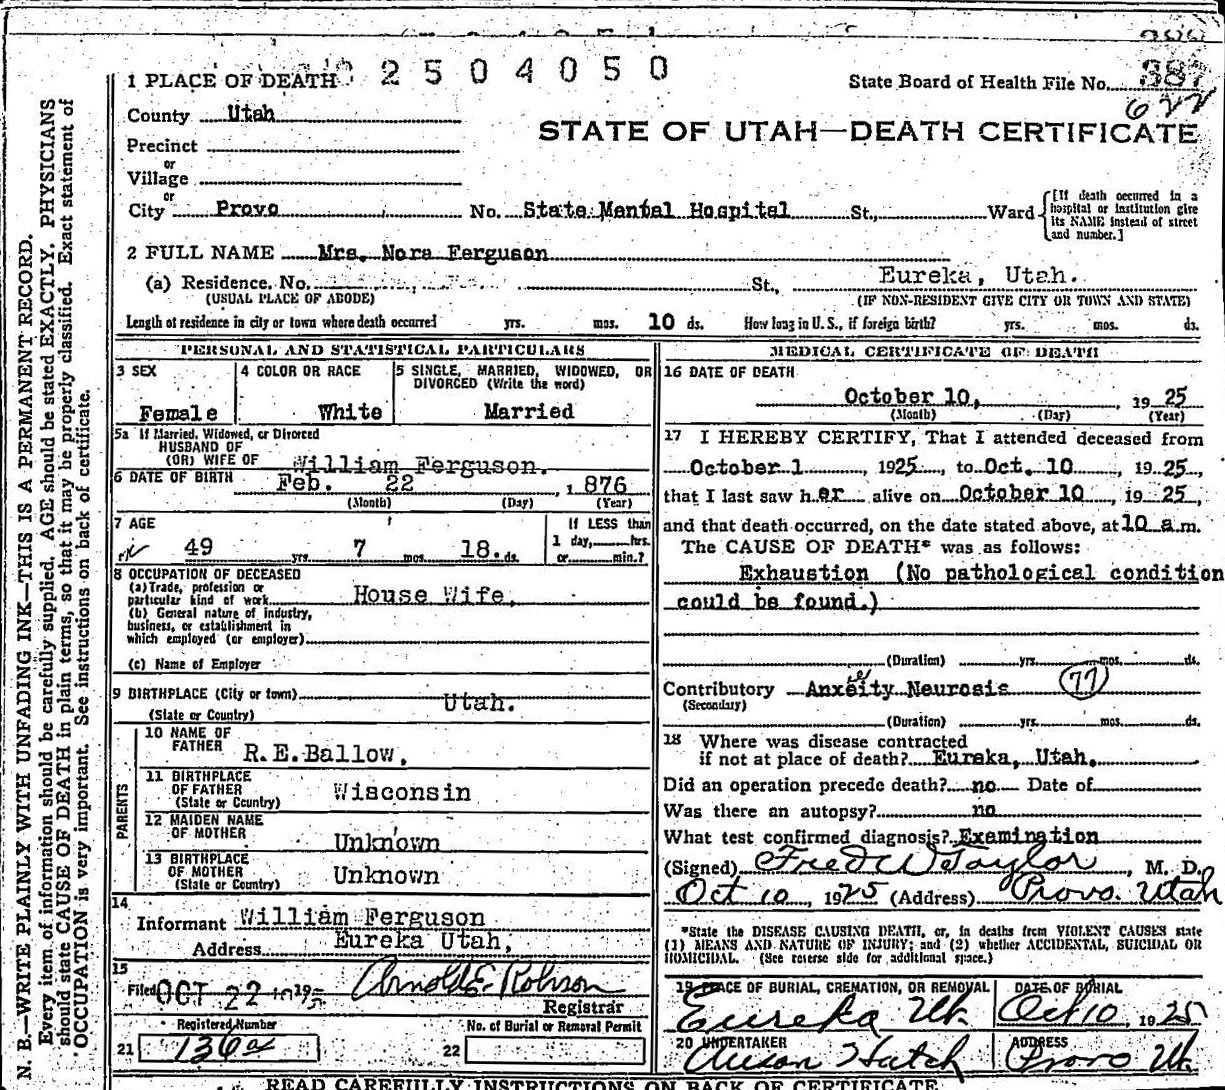 2504050
1 PLACE OF DEATH
State Board of Health File No. 387
County Utah
622
STATE OF UTAH—DEATH CERTIFICATE
Precinct
or
Village
or
City Provo No. State Mental Hospital St., Ward
[If death occurred in a
hospital or institution give
its NAME instead of street
and number.]
2 FULL NAME Mrs. Nora Ferguson
(a) Residence. No. St., Eureka, Utah.
(USUAL PLACE OF ABODE) (IF NON-RESIDENT GIVE CITY OR TOWN AND STATE)
Length of residence in city or town where death occurred yrs. mos. 10 ds. How long in U. S., if foreign birth? yrs. mos. ds.
PERSONAL AND STATISTICAL PARTICULARS
3 SEX
Female
4 COLOR OR RACE
White
5 SINGLE, MARRIED, WIDOWED, OR
DIVORCED (Write the word)
Married
5a If Married, Widowed, or Divorced
HUSBAND OF
(OR) WIFE OF William Ferguson.
6 DATE OF BIRTH Feb. 22, 1876
(Month) (Day) (Year)
7 AGE
49 yrs. 7 mos. 18. ds.
If LESS than
1 day, hrs.
or min.?
8 OCCUPATION OF DECEASED
(a) Trade, profession or
particular kind of work House Wife.
(b) General nature of industry,
business, or establishment in
which employed (or employer)
(c) Name of Employer
9 BIRTHPLACE (City or town)
(State or Country) Utah.
PARENTS
10 NAME OF
FATHER R.E.Ballow,
11 BIRTHPLACE
OF FATHER
(State or Country) Wisconsin
12 MAIDEN NAME
OF MOTHER Unknown
13 BIRTHPLACE
OF MOTHER
(State or Country) Unknown
14
Informant William Ferguson
Address Eureka Utah,
15
Filed OCT 22 192 Arnold E. Robison
Registrar
Registered Number
21 136a
No. of Burial or Removal Permit
22
MEDICAL CERTIFICATE OF DEATH
16 DATE OF DEATH
October 10, 1925
(Month) (Day) (Year)
17 I HEREBY CERTIFY, That I attended deceased from
October 1, 1925, to Oct. 10, 1925,
that I last saw her alive on October 10, 1925,
and that death occurred, on the date stated above, at 10 a.m.
The CAUSE OF DEATH* was as follows:
Exhaustion (No pathological condition
could be found.)
(Duration) yrs. mos. ds.
Contributory Anxeity Neurosis 77
(Secondary)
(Duration) yrs. mos. ds.
18 Where was disease contracted
if not at place of death? Eureka, Utah.
Did an operation precede death? no Date of
Was there an autopsy? no
What test confirmed diagnosis? Examination
(Signed) Fred W Taylor, M. D.
Oct 10, 1925 (Address) Provo. Utah
*State the DISEASE CAUSING DEATH, or, in deaths from VIOLENT CAUSES state
(1) MEANS AND NATURE OF INJURY; and (2) whether ACCIDENTAL, SUICIDAL OR
HOMICIDAL. (See reverse side for additional space.)
19 PLACE OF BURIAL, CREMATION, OR REMOVAL
Eureka Ut.
DATE OF BURIAL
Oct 10, 1925
20 UNDERTAKER
Hatch
ADDRESS
Provo Ut.
READ CAREFULLY INSTRUCTIONS ON BACK OF CERTIFICATE
N. B.—WRITE PLAINLY WITH UNFADING INK—THIS IS A PERMANENT RECORD.
Every item of information should be carefully supplied. AGE should be stated EXACTLY. PHYSICIANS
should state CAUSE OF DEATH in plain terms, so that it may be properly classified. Exact statement of
OCCUPATION is very important. See instructions on back of certificate.